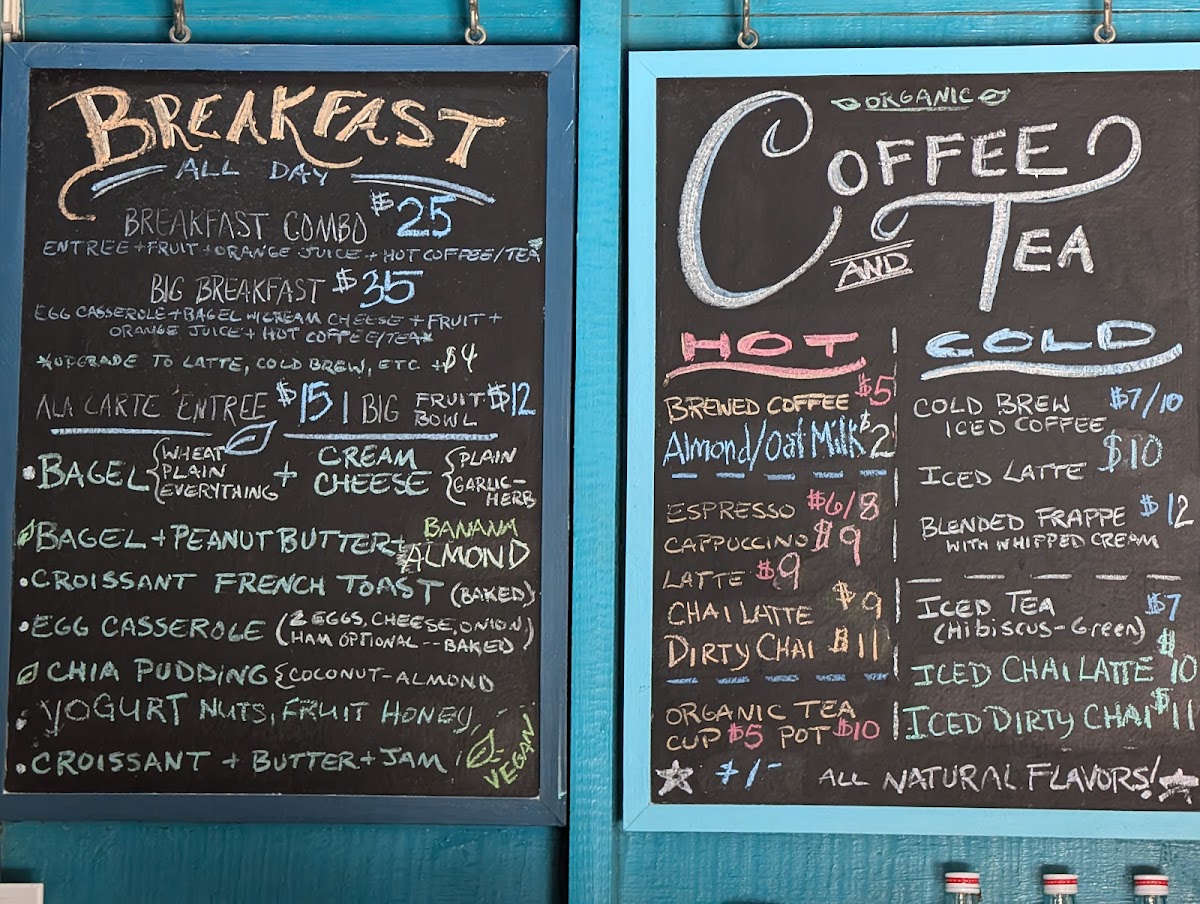 BREAKFAST
ALL DAY
BREAKFAST COMBO $25
ENTREE + FRUIT + ORANGE JUICE + HOT COFFEE/TEA*
BIG BREAKFAST $35
EGG CASSEROLE + BAGEL W/CREAM CHEESE + FRUIT +
ORANGE JUICE + HOT COFFEE/TEA*
*UPGRADE TO LATTE, COLD BREW, ETC. +$4
ALA CARTE ENTREE $15 | BIG FRUIT BOWL $12
• BAGEL { WHEAT PLAIN EVERYTHING + CREAM CHEESE { PLAIN GARLIC-HERB
BAGEL + PEANUT BUTTER + BANANA ALMOND
• CROISSANT FRENCH TOAST (BAKED)
• EGG CASSEROLE (2 EGGS, CHEESE, ONION, HAM OPTIONAL -- BAKED)
CHIA PUDDING { COCONUT-ALMOND
• YOGURT NUTS, FRUIT HONEY
• CROISSANT + BUTTER + JAM
VEGAN
ORGANIC
COFFEE
AND TEA
HOT
BREWED COFFEE $5
Almond/Oat Milk $2
ESPRESSO $6/8
CAPPUCCINO $9
LATTE $9
CHAI LATTE $9
DIRTY CHAI $11
ORGANIC TEA
CUP $5 POT $10
COLD
COLD BREW $7/10
ICED COFFEE
ICED LATTE $10
BLENDED FRAPPE $12
WITH WHIPPED CREAM
ICED TEA $7
(Hibiscus-Green)
ICED CHAI LATTE $10
ICED DIRTY CHAI $11
$1/- ALL NATURAL FLAVORS!